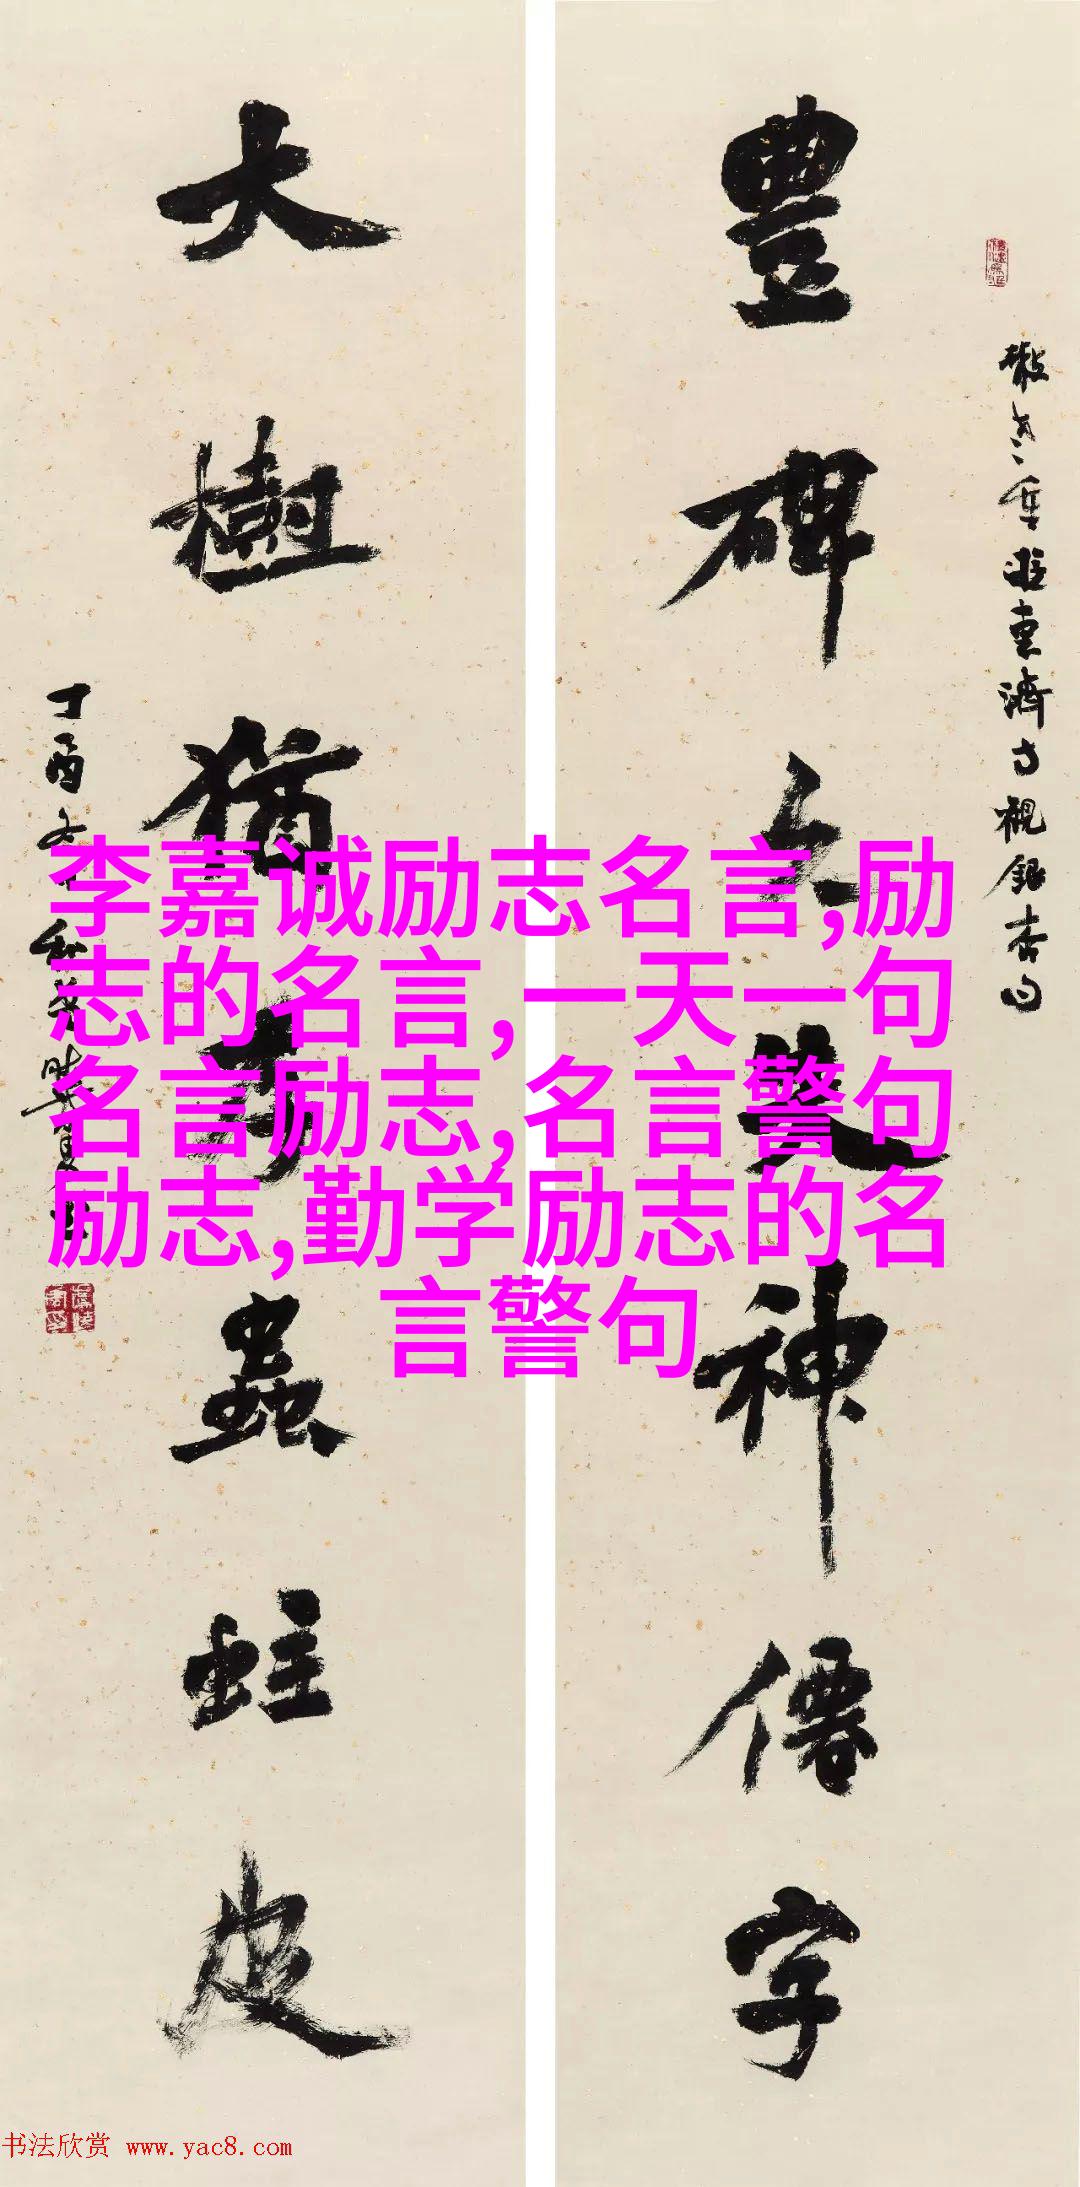 遊惠濟寺觀銀杏句
豐碑久失神僊字
大樹猶蟲蛀皮
丁酉
李嘉诚励志名言,励
志的名言,一天一句
名言励志,名言警句
励志,勤学励志的名
言警句
书法欣赏 www.yac8.com